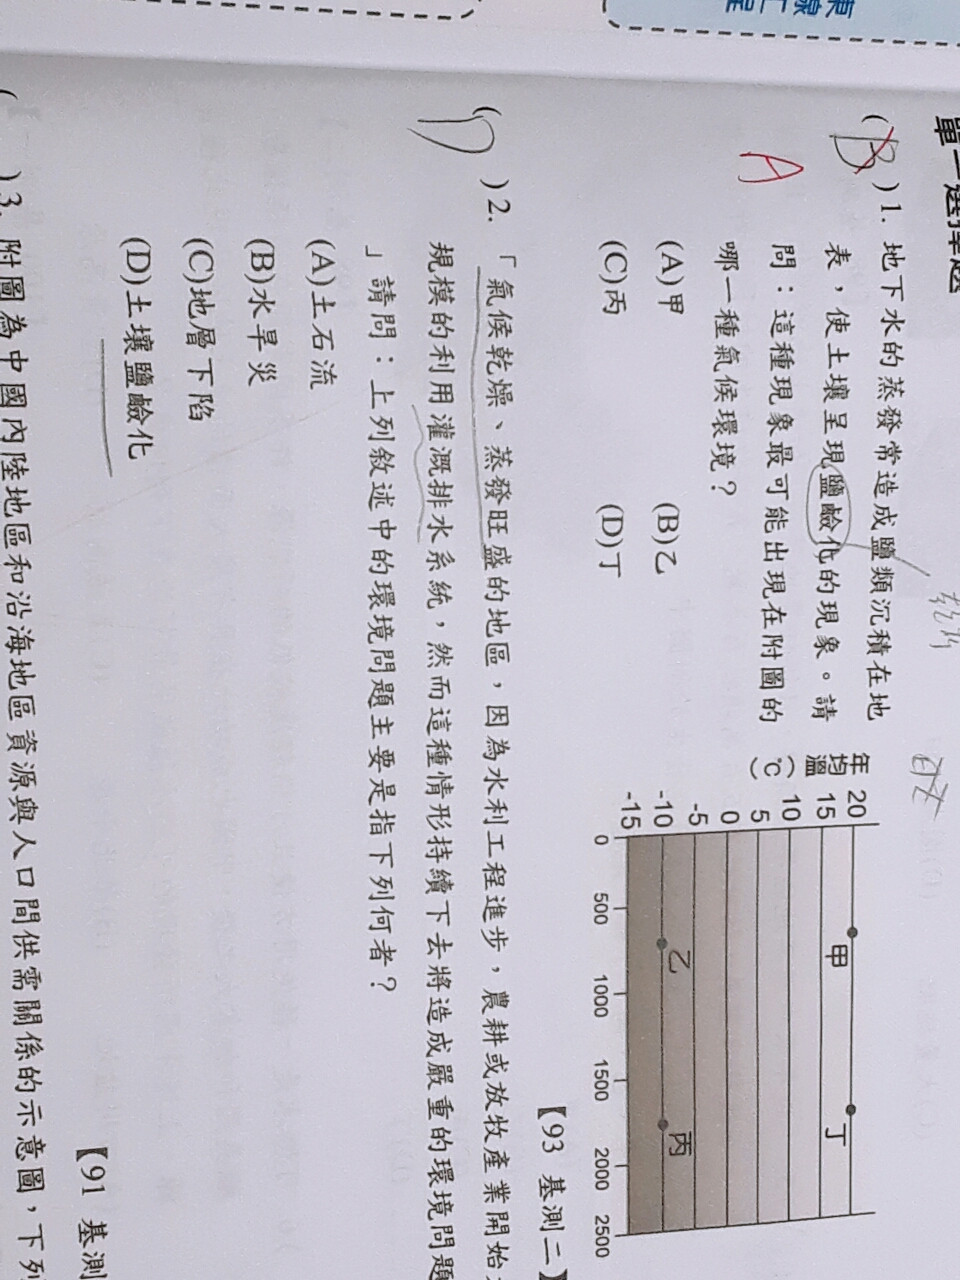 單一選擇題
(B)1. 地下水的蒸發常造成鹽類沉積在地
表，使土壤呈現鹽鹼化的現象。請
問：這種現象最可能出現在附圖的
哪一種氣候環境？
A
(A)甲 (B)乙
(C)丙 (D)丁
年均溫(℃)
20
15
10
5
0
-5
-10
-15
0 500 1000 1500 2000 2500
甲 丁
乙 丙
【93 基測二】
(D)2. 「氣候乾燥、蒸發旺盛的地區，因為水利工程進步，農耕或放牧產業開始
規模的利用灌溉排水系統，然而這種情形持續下去將造成嚴重的環境問題
」請問：上列敘述中的環境問題主要是指下列何者？
(A)土石流
(B)水旱災
(C)地層下陷
(D)土壤鹽鹼化
【91 基測
( )3. 附圖為中國內陸地區和沿海地區資源與人口間供需關係的示意圖，下列